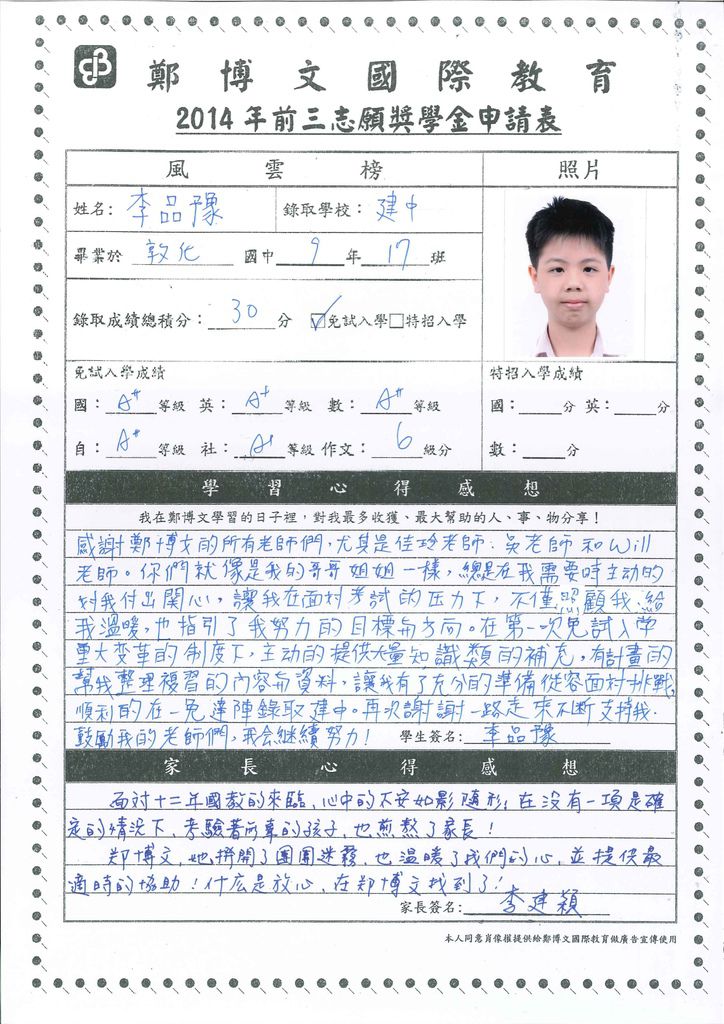 鄭博文國際教育
2014年前三志願獎學金申請表
風雲榜 照片
姓名: 李品豫 錄取學校: 建中
畢業於 敦化 國中 9 年 17 班
錄取成績總積分: 30 分 ☑免試入學□特招入學
免試入學成績 特招入學成績
國: A++ 等級 英: A+ 等級 數: A++ 等級 國:____分 英:____分
自: A++ 等級 社: A+ 等級 作文: 6 級分 數:____分
學習心得感想
我在鄭博文學習的日子裡,對我最多收獲、最大幫助的人、事、物分享!
感謝鄭博文的所有老師們,尤其是佳玲老師、吳老師和Will
老師。你們就像是我的哥哥姐姐一樣,總是在我需要時主動的
對我付出関心,讓我在面対考試的压力下,不僅照顧我、給
我溫暖,也指引了我努力的目標与方向。在第一次免試入學
重大变革的制度下,主动的提供大量知識類的補充,有計畫的
幫我整理複習的內容与資料,讓我有了充分的準備從容面対挑戰,
順利的在一免達陣錄取建中。再次謝謝一路走來不断支持我、
鼓勵我的老師們,我会継續努力! 學生簽名: 李品豫
家長心得感想
面対十二年國教的來臨,心中的不安如影隨形;在没有一項是確
定的情況下,考驗著所有的孩子,也煎熬了家長!
郑博文,她拼開了團團迷霧,也溫暖了我們的心,並提供最
適時的協助!什麼是放心,在郑博文找到了!
家長簽名: 李建穎
本人同意肖像權提供給鄭博文國際教育做廣告宣傳使用